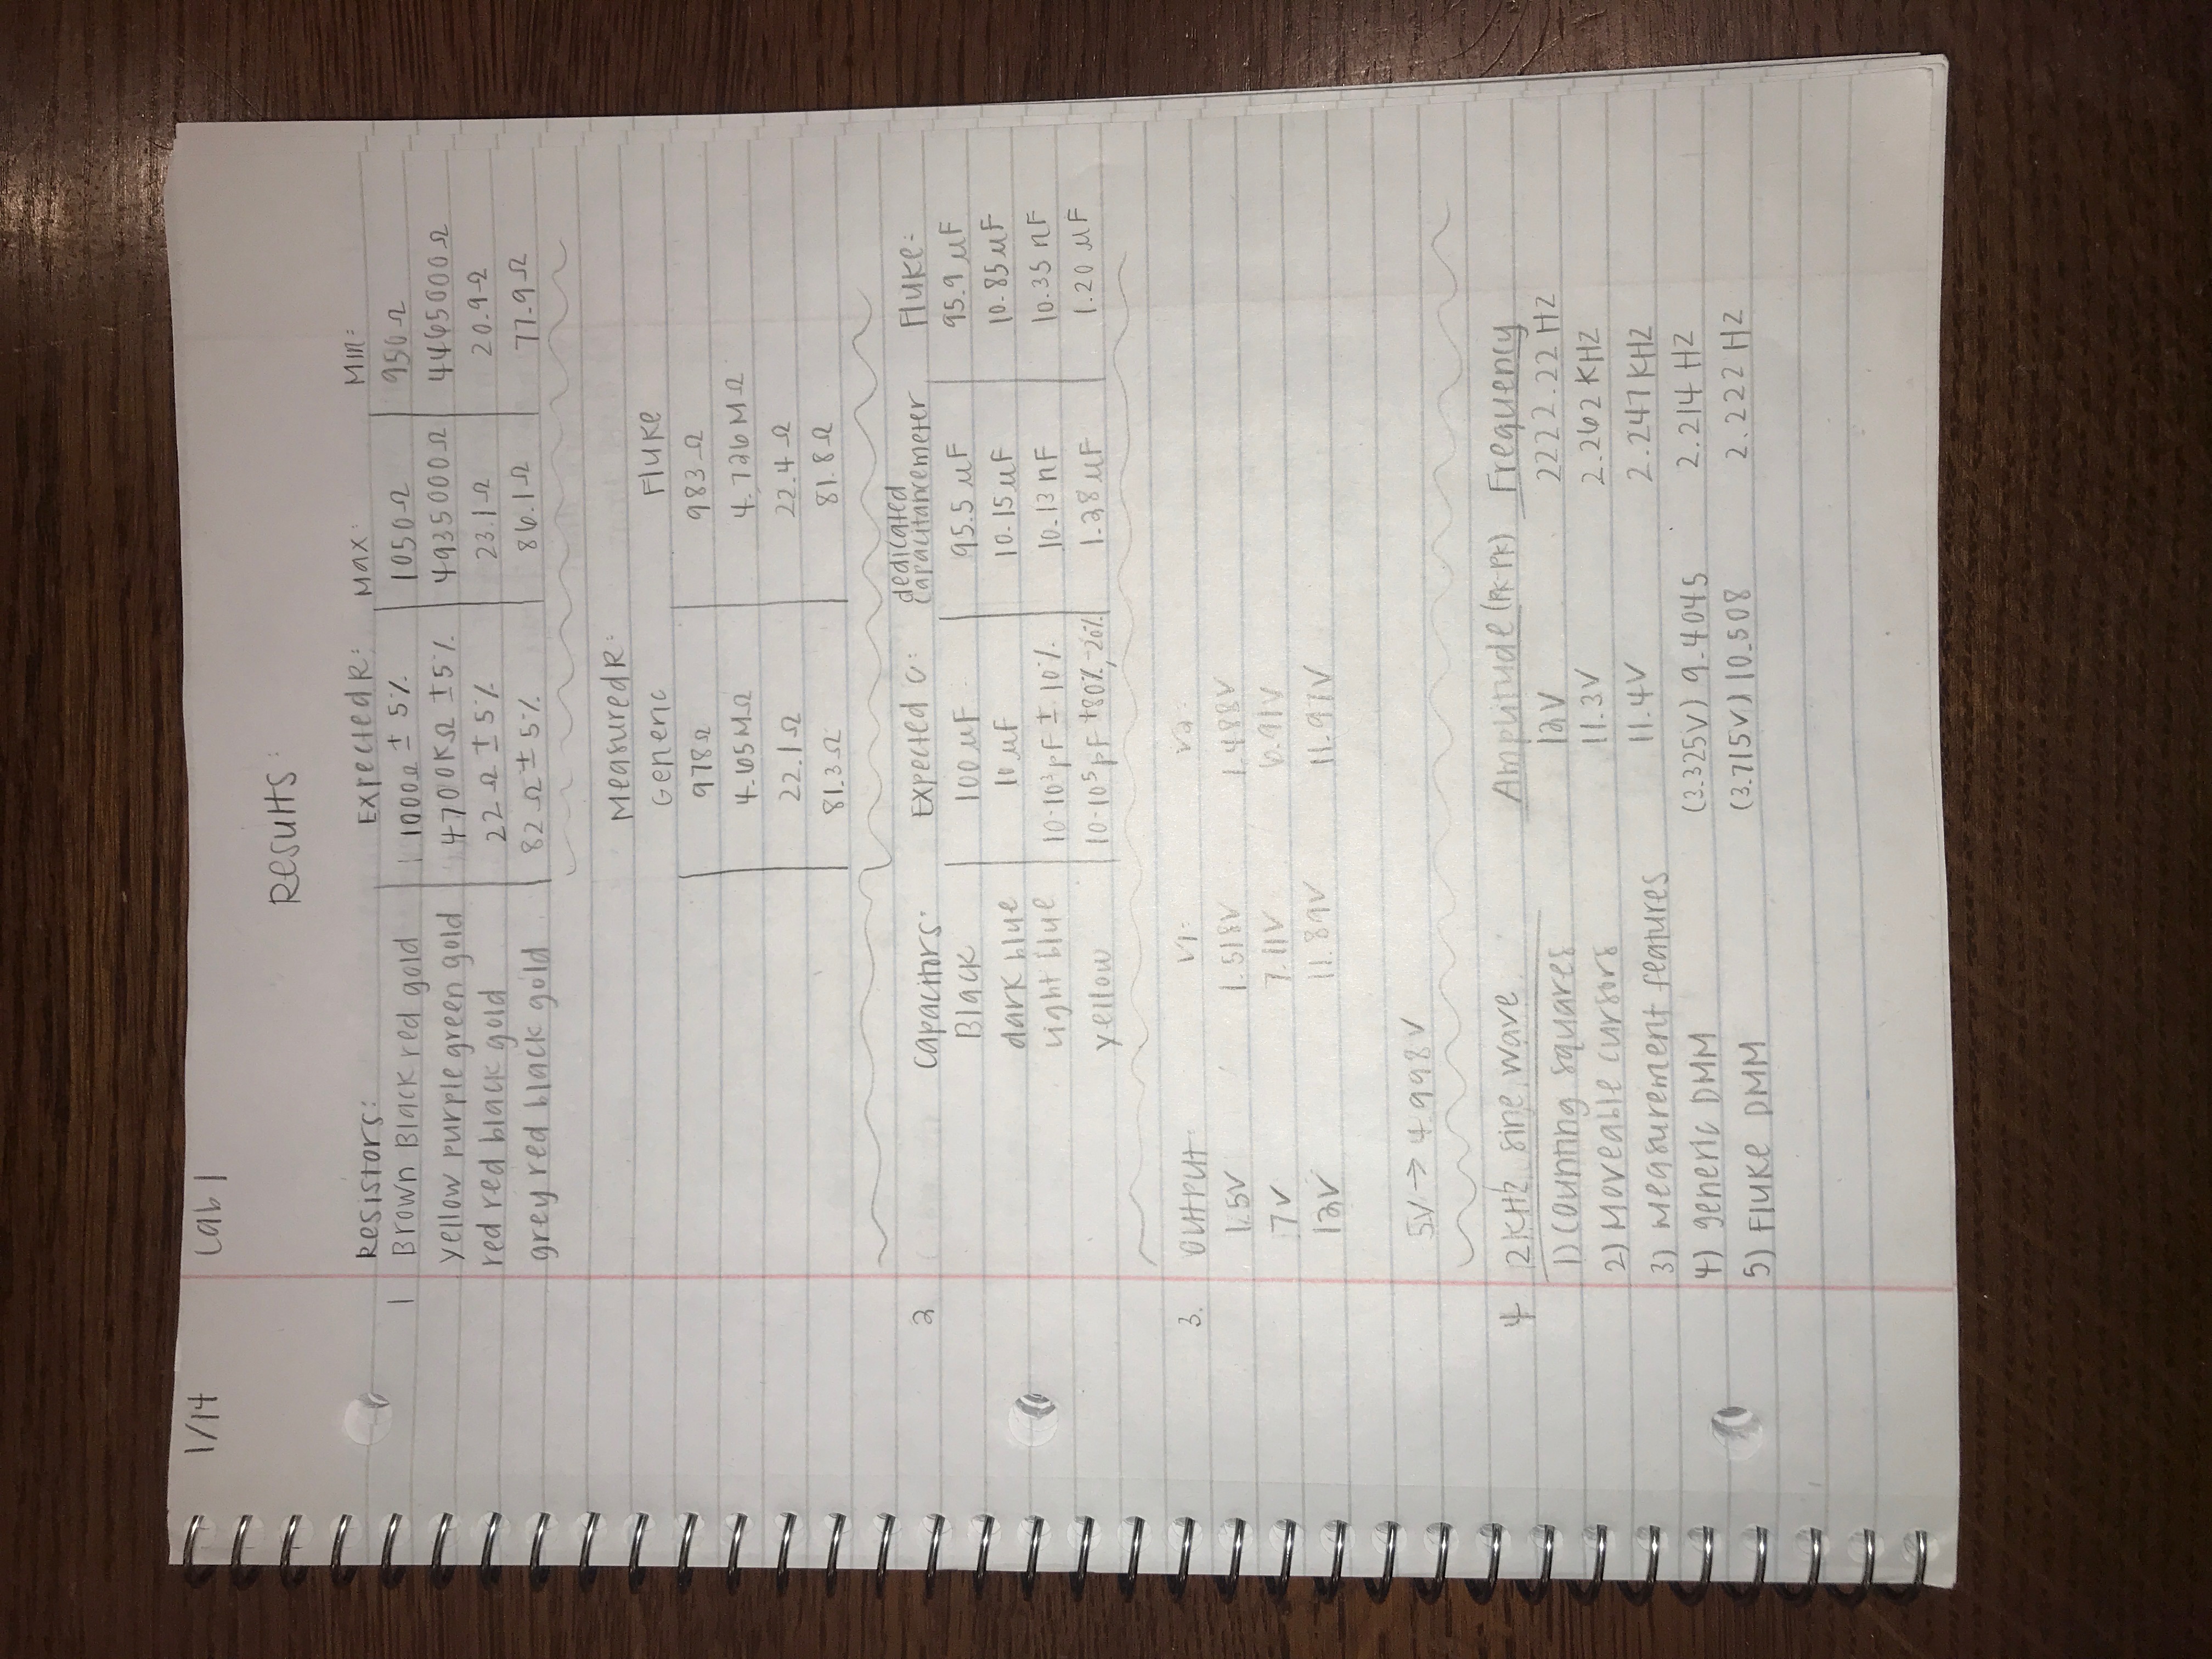 1/14 Lab 1
Results:
Resistors: Expected R: Max: Min:
1 Brown Black red gold 1000Ω ± 5% 1050Ω 950Ω
yellow purple green gold 4700KΩ ±5% 4935000Ω 4465000Ω
red red black gold 22Ω ± 5% 23.1Ω 20.9Ω
grey red black gold 82Ω ± 5% 86.1Ω 77.9Ω
Measured R:
Generic Fluke
978Ω 983Ω
4.65MΩ 4.726MΩ
22.1Ω 22.4Ω
81.3Ω 81.8Ω
dedicated
2 Capacitors: Expected C: capacitancemeter Fluke:
Black 100 μF 95.5 μF 95.9 μF
dark blue 10 μF 10.15 μF 10.85 μF
light blue 10·10³pF ± 10% 10.13 nF 10.35 nF
yellow 10·10⁵pF +80%, -20% 1.28 μF 1.20 μF
3. Output: V1: V2:
1.5V 1.518V 1.488V
7V 7.11V 6.91V
12V 11.89V 11.97V
5V → 4.998V
4 2KHz sine wave Amplitude (PK-PK) Frequency
1) Counting squares 12V 2222.22 HZ
2) Moveable cursors 11.3V 2.262 KHZ
3) Measurement features 11.4V 2.247 KHZ
4) generic DMM (3.325V) 9.4045 2.214 HZ
5) Fluke DMM (3.715V) 10.508 2.222 HZ